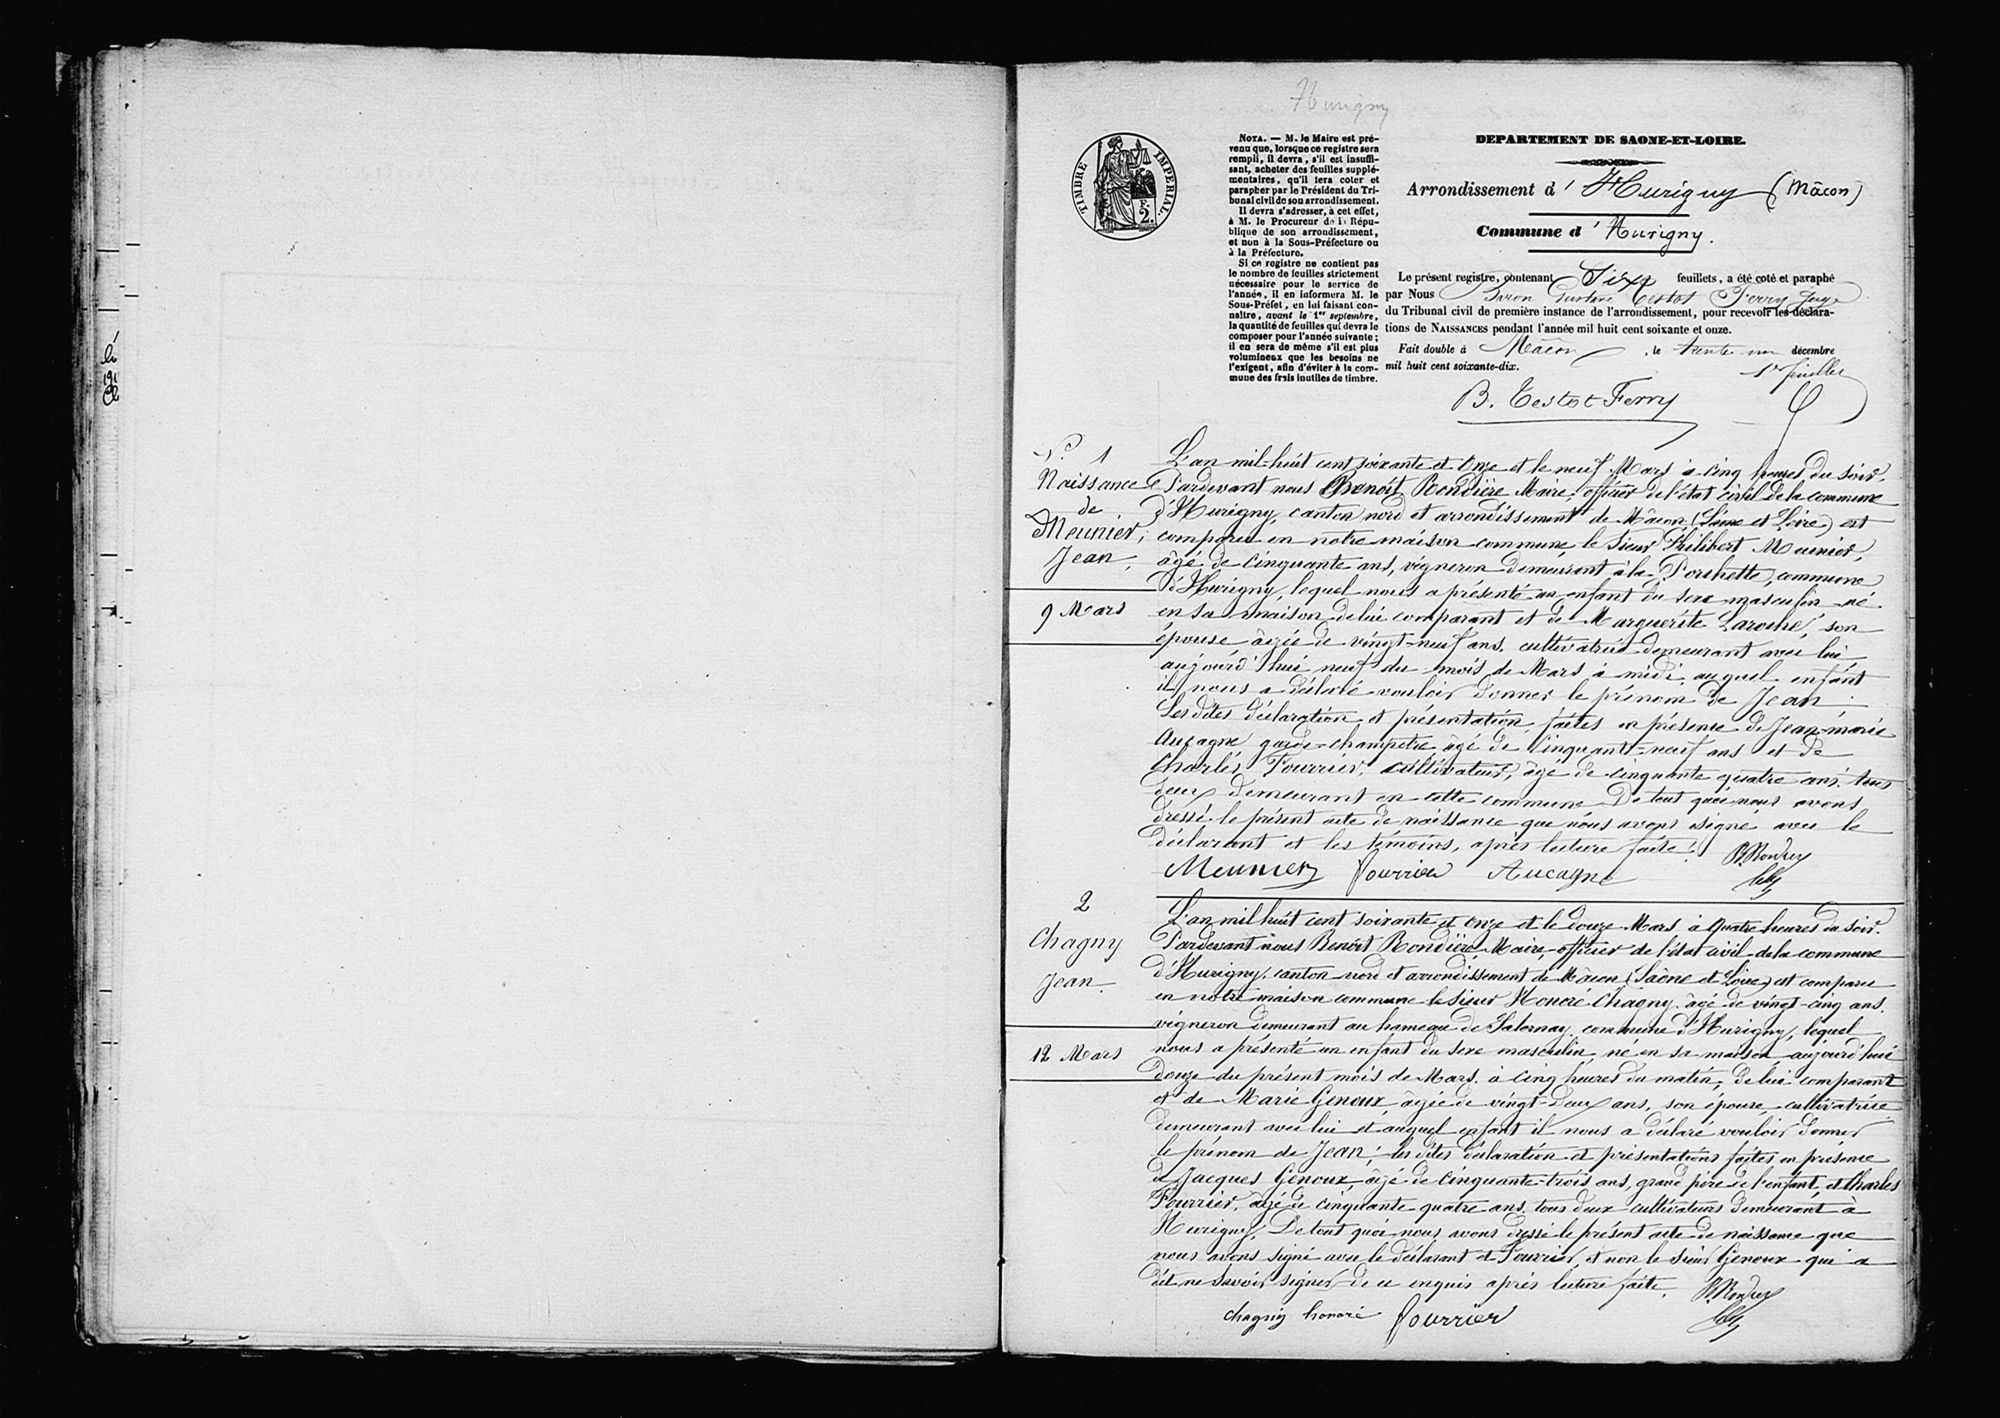 Hurigny
TIMBRE IMPERIAL.
F.
2.
NOTA. — M. le Maire est pré-
venu que, lorsque ce registre sera
rempli, il devra, s'il est insuffi-
sant, acheter des feuilles supplé-
mentaires, qu'il fera coter et
parapher par le Président du Tri-
bunal civil de son arrondissement.
Il devra s'adresser, à cet effet,
à M. le Procureur de la Répu-
blique de son arrondissement,
et non à la Sous-Préfecture ou
à la Préfecture.
Si ce registre ne contient pas
le nombre de feuilles strictement
nécessaire pour le service de
l'année, il en informera M. le
Sous-Préfet, en lui faisant con-
naître, avant le 1er septembre,
la quantité de feuilles qui devra le
composer pour l'année suivante;
il en sera de même s'il est plus
volumineux que les besoins ne
l'exigent, afin d'éviter à la com-
mune des frais inutiles de timbre.
DEPARTEMENT DE SAONE-ET-LOIRE.
Arrondissement d' Hurigny (Mâcon)
Commune d' Hurigny.
Le présent registre, contenant Six feuillets, a été coté et paraphé
par Nous Baron Gustave Testot Ferry Juge
du Tribunal civil de première instance de l'arrondissement, pour recevoir les déclara-
tions de NAISSANCES pendant l'année mil huit cent soixante et onze.
Fait double à Mâcon, le trente un décembre
mil huit cent soixante-dix.
1er feuillet
B. Testot Ferry
N.° 1
Naissance
de
Meunier,
Jean.
9 Mars
L'an mil-huit cent soixante et Onze et le neuf Mars à cinq heures du soir.
Pardevant nous Benoît Rondière Maire, officier de l'état civil de la commune
d'Hurigny, canton nord et arrondissement de Mâcon, (Saône et Loire) est
comparu en notre maison commune, le Sieur Philibert Meunier,
âgé de Cinquante ans, vigneron demeurant à la commune
d'Hurigny, lequel nous a présenté un enfant du sexe masculin né
en sa maison de lui comparant et de Marguerite Laroche, son
épouse âgée de vingt-neuf ans, cultivatrice demeurant avec lui
aujourd'hui neuf du mois de Mars à midi auquel enfant
il nous a déclaré vouloir donner le prénom de Jean;
Les dites déclaration et présentation faites en présence de Jean-marie
Aucagne garde-champetre âgé de Cinquant-neuf ans et de
Charles Fourrier, cultivateur, âgé de cinquante quatre ans. tous
deux demeurant en cette commune De tout quoi nous avons
dressé le présent acte de naissance que nous avons signé avec le
déclarant et les témoins, après lecture faite.
Meunier Fourrier Aucagne
2
Chagny
Jean.
12 Mars
L'an mil huit cent soixante et Onze et le douze Mars à Quatre heures du soir.
Pardevant nous Benoît Rondière, Maire, officier de l'état civil de la commune
d'Hurigny, canton nord et arrondissement de Mâcon (Saône et Loire) est comparu
en notre maison commune le Sieur Honoré Chagny âgé de vingt-cinq ans.
vigneron demeurant au hameau de Salornay, commune d'Hurigny, lequel
nous a présenté un enfant du sexe masculin, né en sa maison aujourd'hui
douze du présent mois de Mars. à Cinq heures du matin, de lui comparant
et de Marie Genoux, agée de vingt-deux ans, son épouse, cultivatrice
demeurant avec lui et auquel enfant il nous a déclaré vouloir donner
le prénom de Jean; les dites déclaration et présentations faites en présence
de Jacques Genoux, âgé de Cinquante-trois ans, grand père de l'enfant, et Charles
Fourrier, âgé de cinquante quatre ans, tous deux cultivateurs demeurant à
Hurigny, De tout quoi nous avons dressé le présent acte de naissance que
nous avons signé avec le déclarant et Fourrier, et non le Sieur Genoux qui a
dit ne savoir signer de ce enquis après lecture faite.
chagny honoré Fourrier